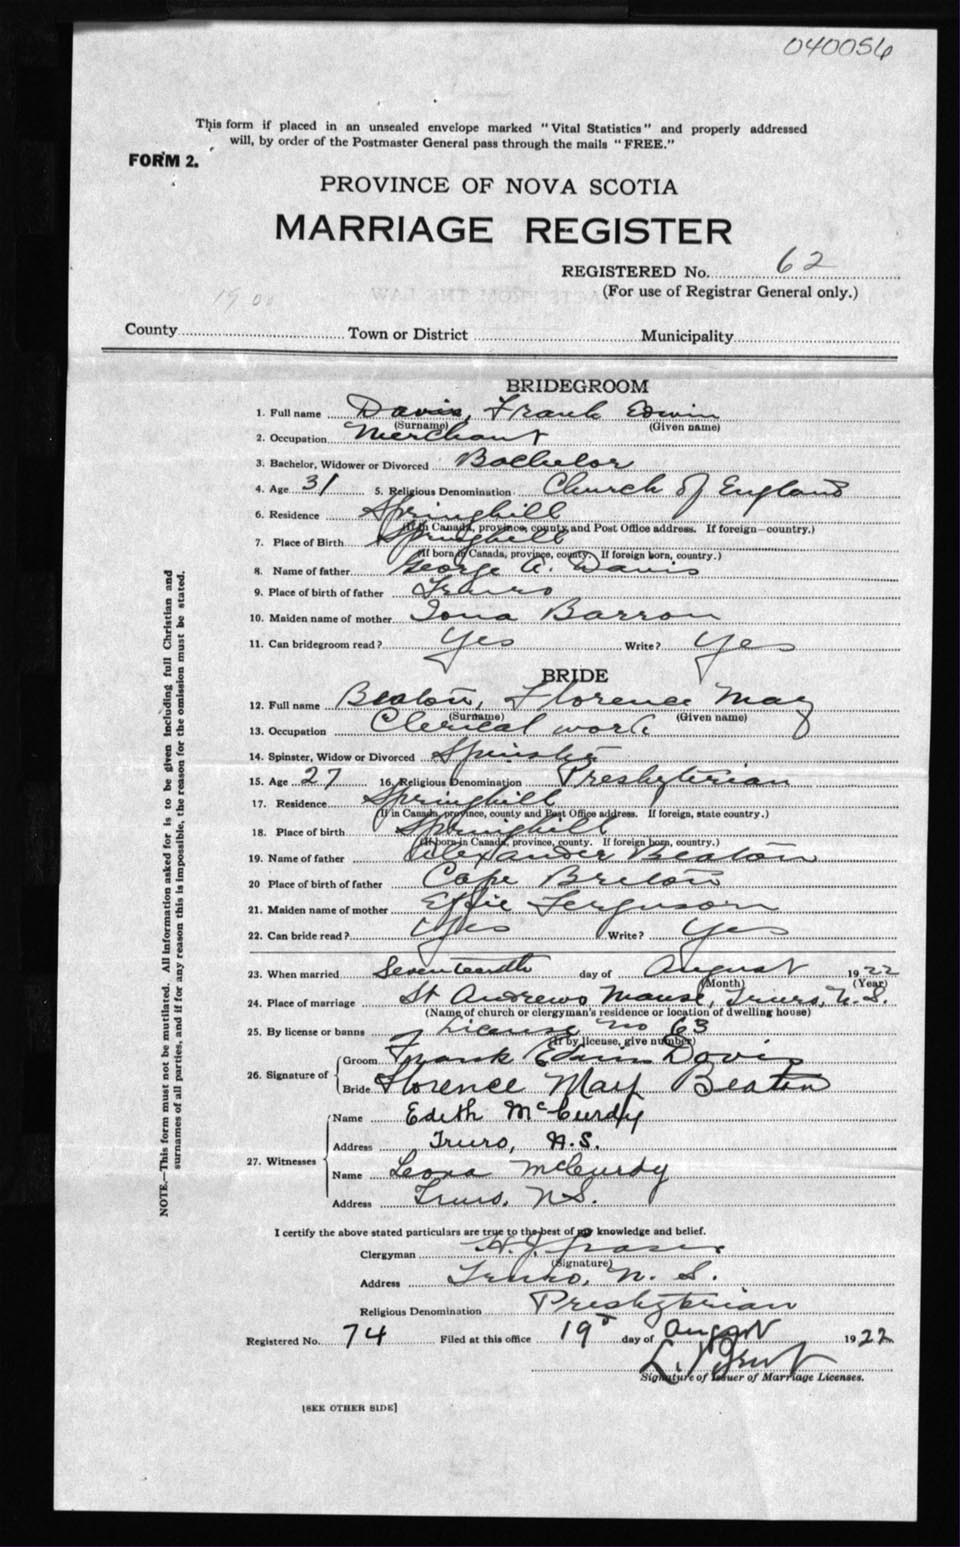 040056
This form if placed in an unsealed envelope marked "Vital Statistics" and properly addressed
will, by order of the Postmaster General pass through the mails "FREE."
FORM 2.
PROVINCE OF NOVA SCOTIA
MARRIAGE REGISTER
REGISTERED No. 62
(For use of Registrar General only.)
County Town or District Municipality
BRIDEGROOM
1. Full name Davis, Frank Edwin
(Surname) (Given name)
2. Occupation Merchant
3. Bachelor, Widower or Divorced Bachelor
4. Age 31 5. Religious Denomination Church of England
6. Residence Springhill
(If in Canada, province, county and Post Office address. If foreign—country.)
7. Place of Birth Springhill
(If born in Canada, province, county. If foreign born, country.)
8. Name of father George A. Davis
9. Place of birth of father Truro
10. Maiden name of mother Iona Barron
11. Can bridegroom read? Yes Write? Yes
BRIDE
12. Full name Beaton, Florence May
(Surname) (Given name)
13. Occupation Clerical work
14. Spinster, Widow or Divorced Spinster
15. Age 27 16. Religious Denomination Presbyterian
17. Residence Springhill
(If in Canada, province, county and Post Office address. If foreign, state country.)
18. Place of birth Springhill
(If born in Canada, province, county. If foreign born, country.)
19. Name of father Alexander Beaton
20 Place of birth of father Cape Breton
21. Maiden name of mother Effie Ferguson
22. Can bride read? Yes Write? Yes
23. When married Seventeenth day of August 1922
(Month) (Year)
24. Place of marriage St Andrews Manse, Truro, N.S.
(Name of church or clergyman's residence or location of dwelling house)
25. By license or banns License No 63
(If by license, give number)
26. Signature of
Groom Frank Edwin Davis
Bride Florence May Beaton
27. Witnesses
Name Edith McCurdy
Address Truro, N.S.
Name Leona McCurdy
Address Truro, N.S.
I certify the above stated particulars are true to the best of my knowledge and belief.
Clergyman H. J. Fraser
(Signature)
Address Truro, N. S.
Religious Denomination Presbyterian
Registered No. 74 Filed at this office 19 day of August 1922
Signature of Issuer of Marriage Licenses.
[SEE OTHER SIDE]
NOTE.—This form must not be mutilated. All information asked for is to be given including full Christian and
surnames of all parties, and if for any reason this is impossible, the reason for the omission must be stated.